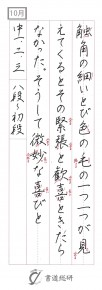 10月
触角の細いとび色の毛の一つ一つが見
えてくるとその緊張と歓喜ときたら
なかった。そうして微妙な喜びと
中一、二、三 八段〜初段
書道総研